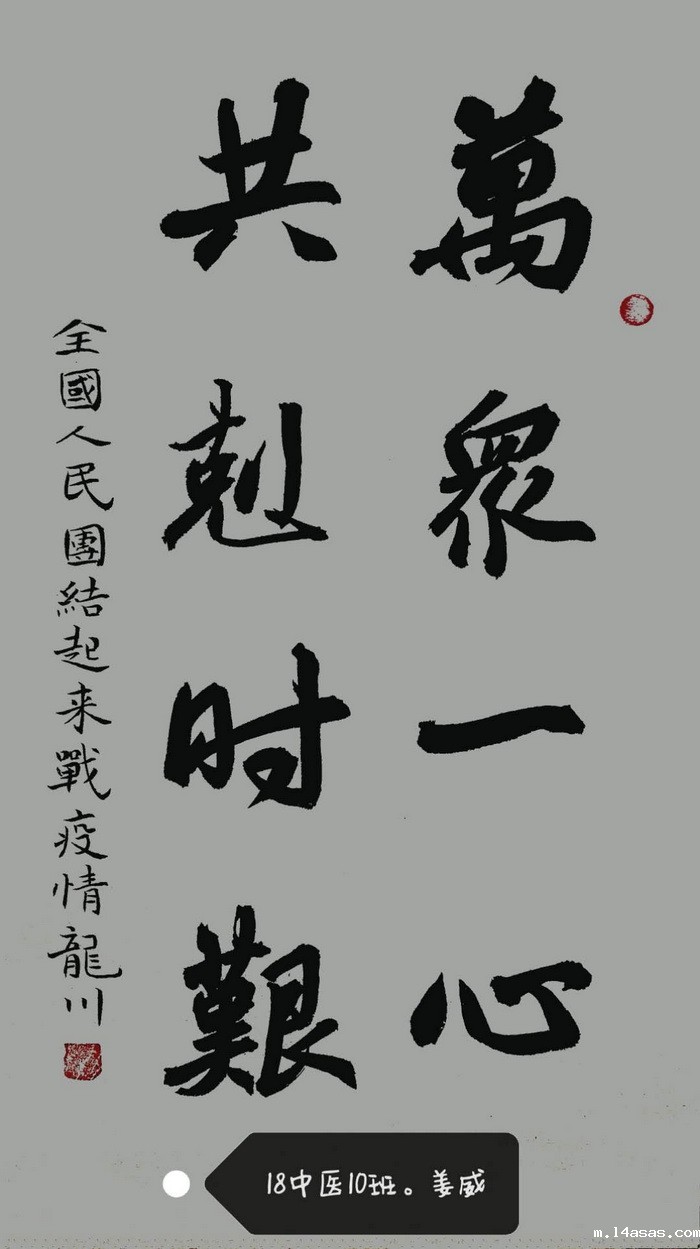 萬眾一心
共剋时艱
全國人民團結起来戰疫情龍川
18中医10班。姜威
m.14asas.com